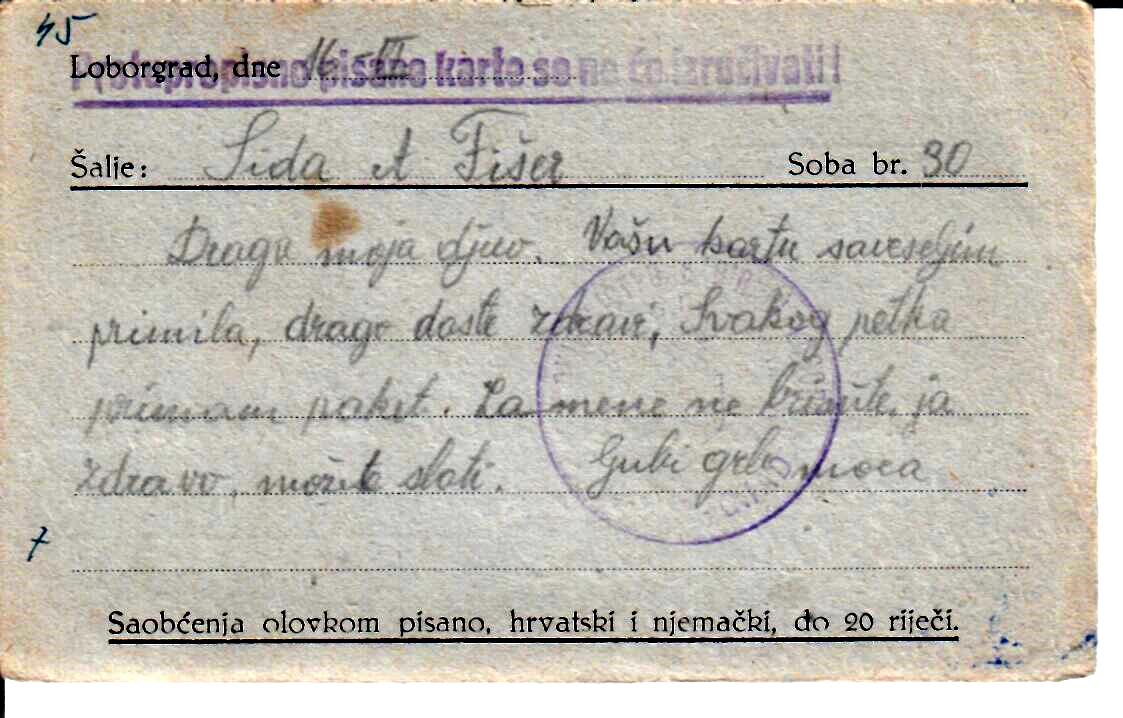 45
Protupropisno pisane karte se ne će uručivati!
Loborgrad, dne 16-III
Šalje: Sida A Fišer Soba br. 30
Draga moja djeco. Vašu kartu saveseljem
primila, drago daste zdravi, Svakog petka
primam paket. Za mene ne brinite, ja
zdravo, možete slati. Ljubi grli
7
Saobćenja olovkom pisano, hrvatski i njemački, do 20 riječi.